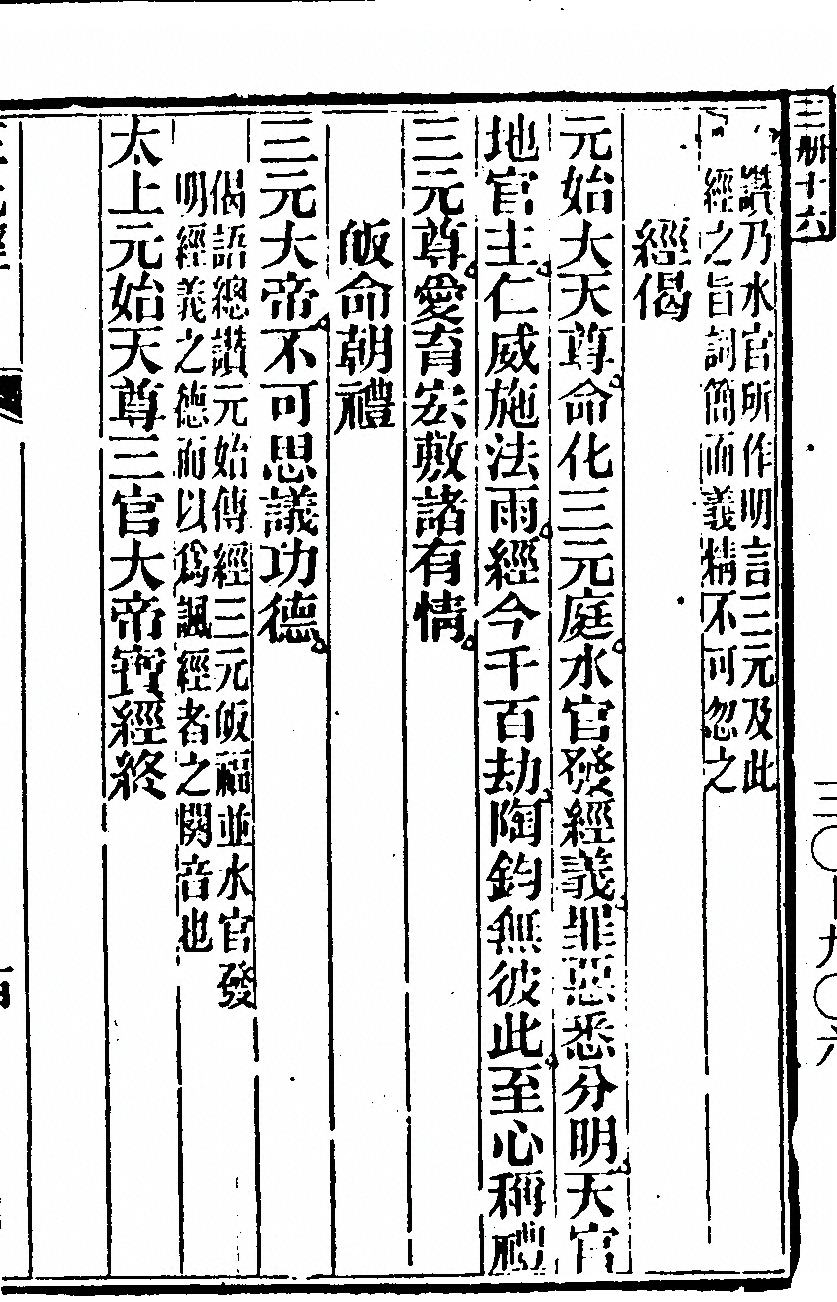 三册十六
讚乃水官所作明言三元及此
經之旨詞簡而義精不可忽之
經偈
元始大天尊命化三元庭水官發經義罪惡悉分明天官
地官主仁威施法雨經今千百劫陶鈞無彼此至心稱禮
三元尊愛育宏敷諸有情
皈命朝禮
三元大帝不可思議功德
偈語總讚元始傳經三元皈福並水官發
明經義之德而以爲諷經者之闋音也
太上元始天尊三官大帝寶經終
三元經
三〇—九〇六